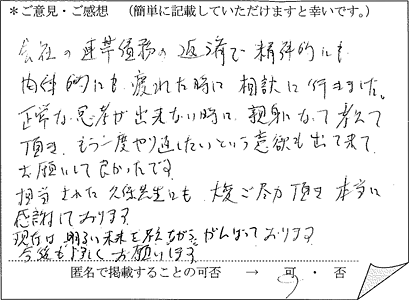 *ご意見・ご感想 （簡単に記載していただけますと幸いです。）
会社の連帯債務の返済で精神的にも
肉体的にも疲れた時に相談に行きました。
正常な思考が出来ない時に、親身になって考えて
頂き、もう一度やり直したいという意欲も出て来て
お願いして良かったです。
担当された久保先生にも大変ご尽力頂き本当に
感謝しております
現在は明るい未来を考えながらがんばっております
今後も宜しくお願いします
匿名で掲載することの可否 → 可 ・ 否